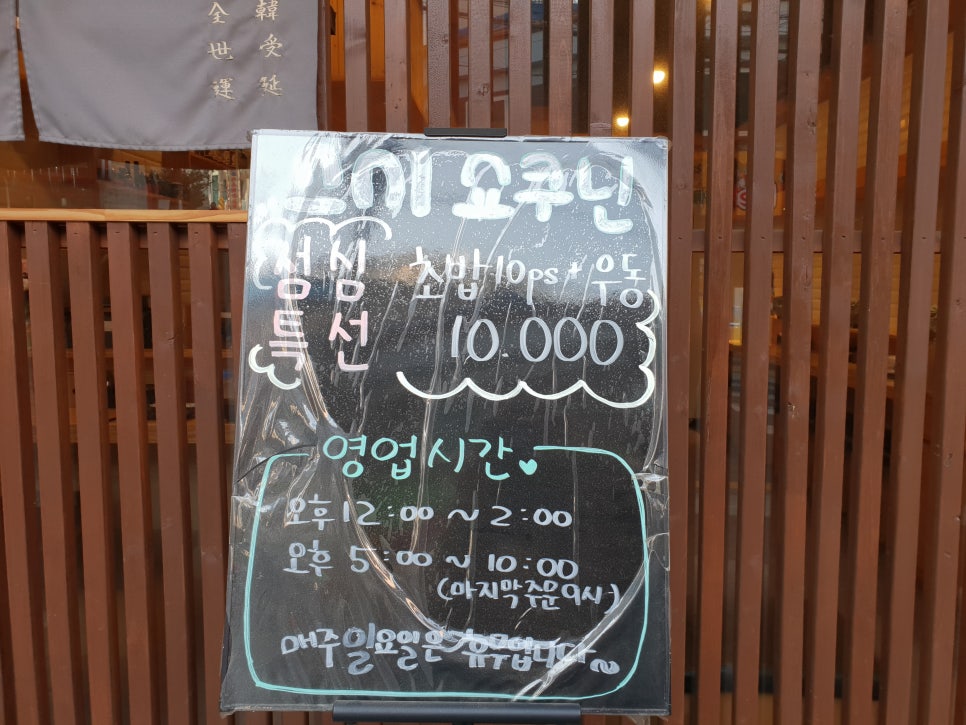 韓受延
全世運
스께 요쿠닌
점심 초밥 10ps + 우동
특선 10.000
영업시간
오후 12:00 ~ 2:00
오후 5:00 ~ 10:00
(마지막주문 9시)
매주 일요일은 휴무입니다~